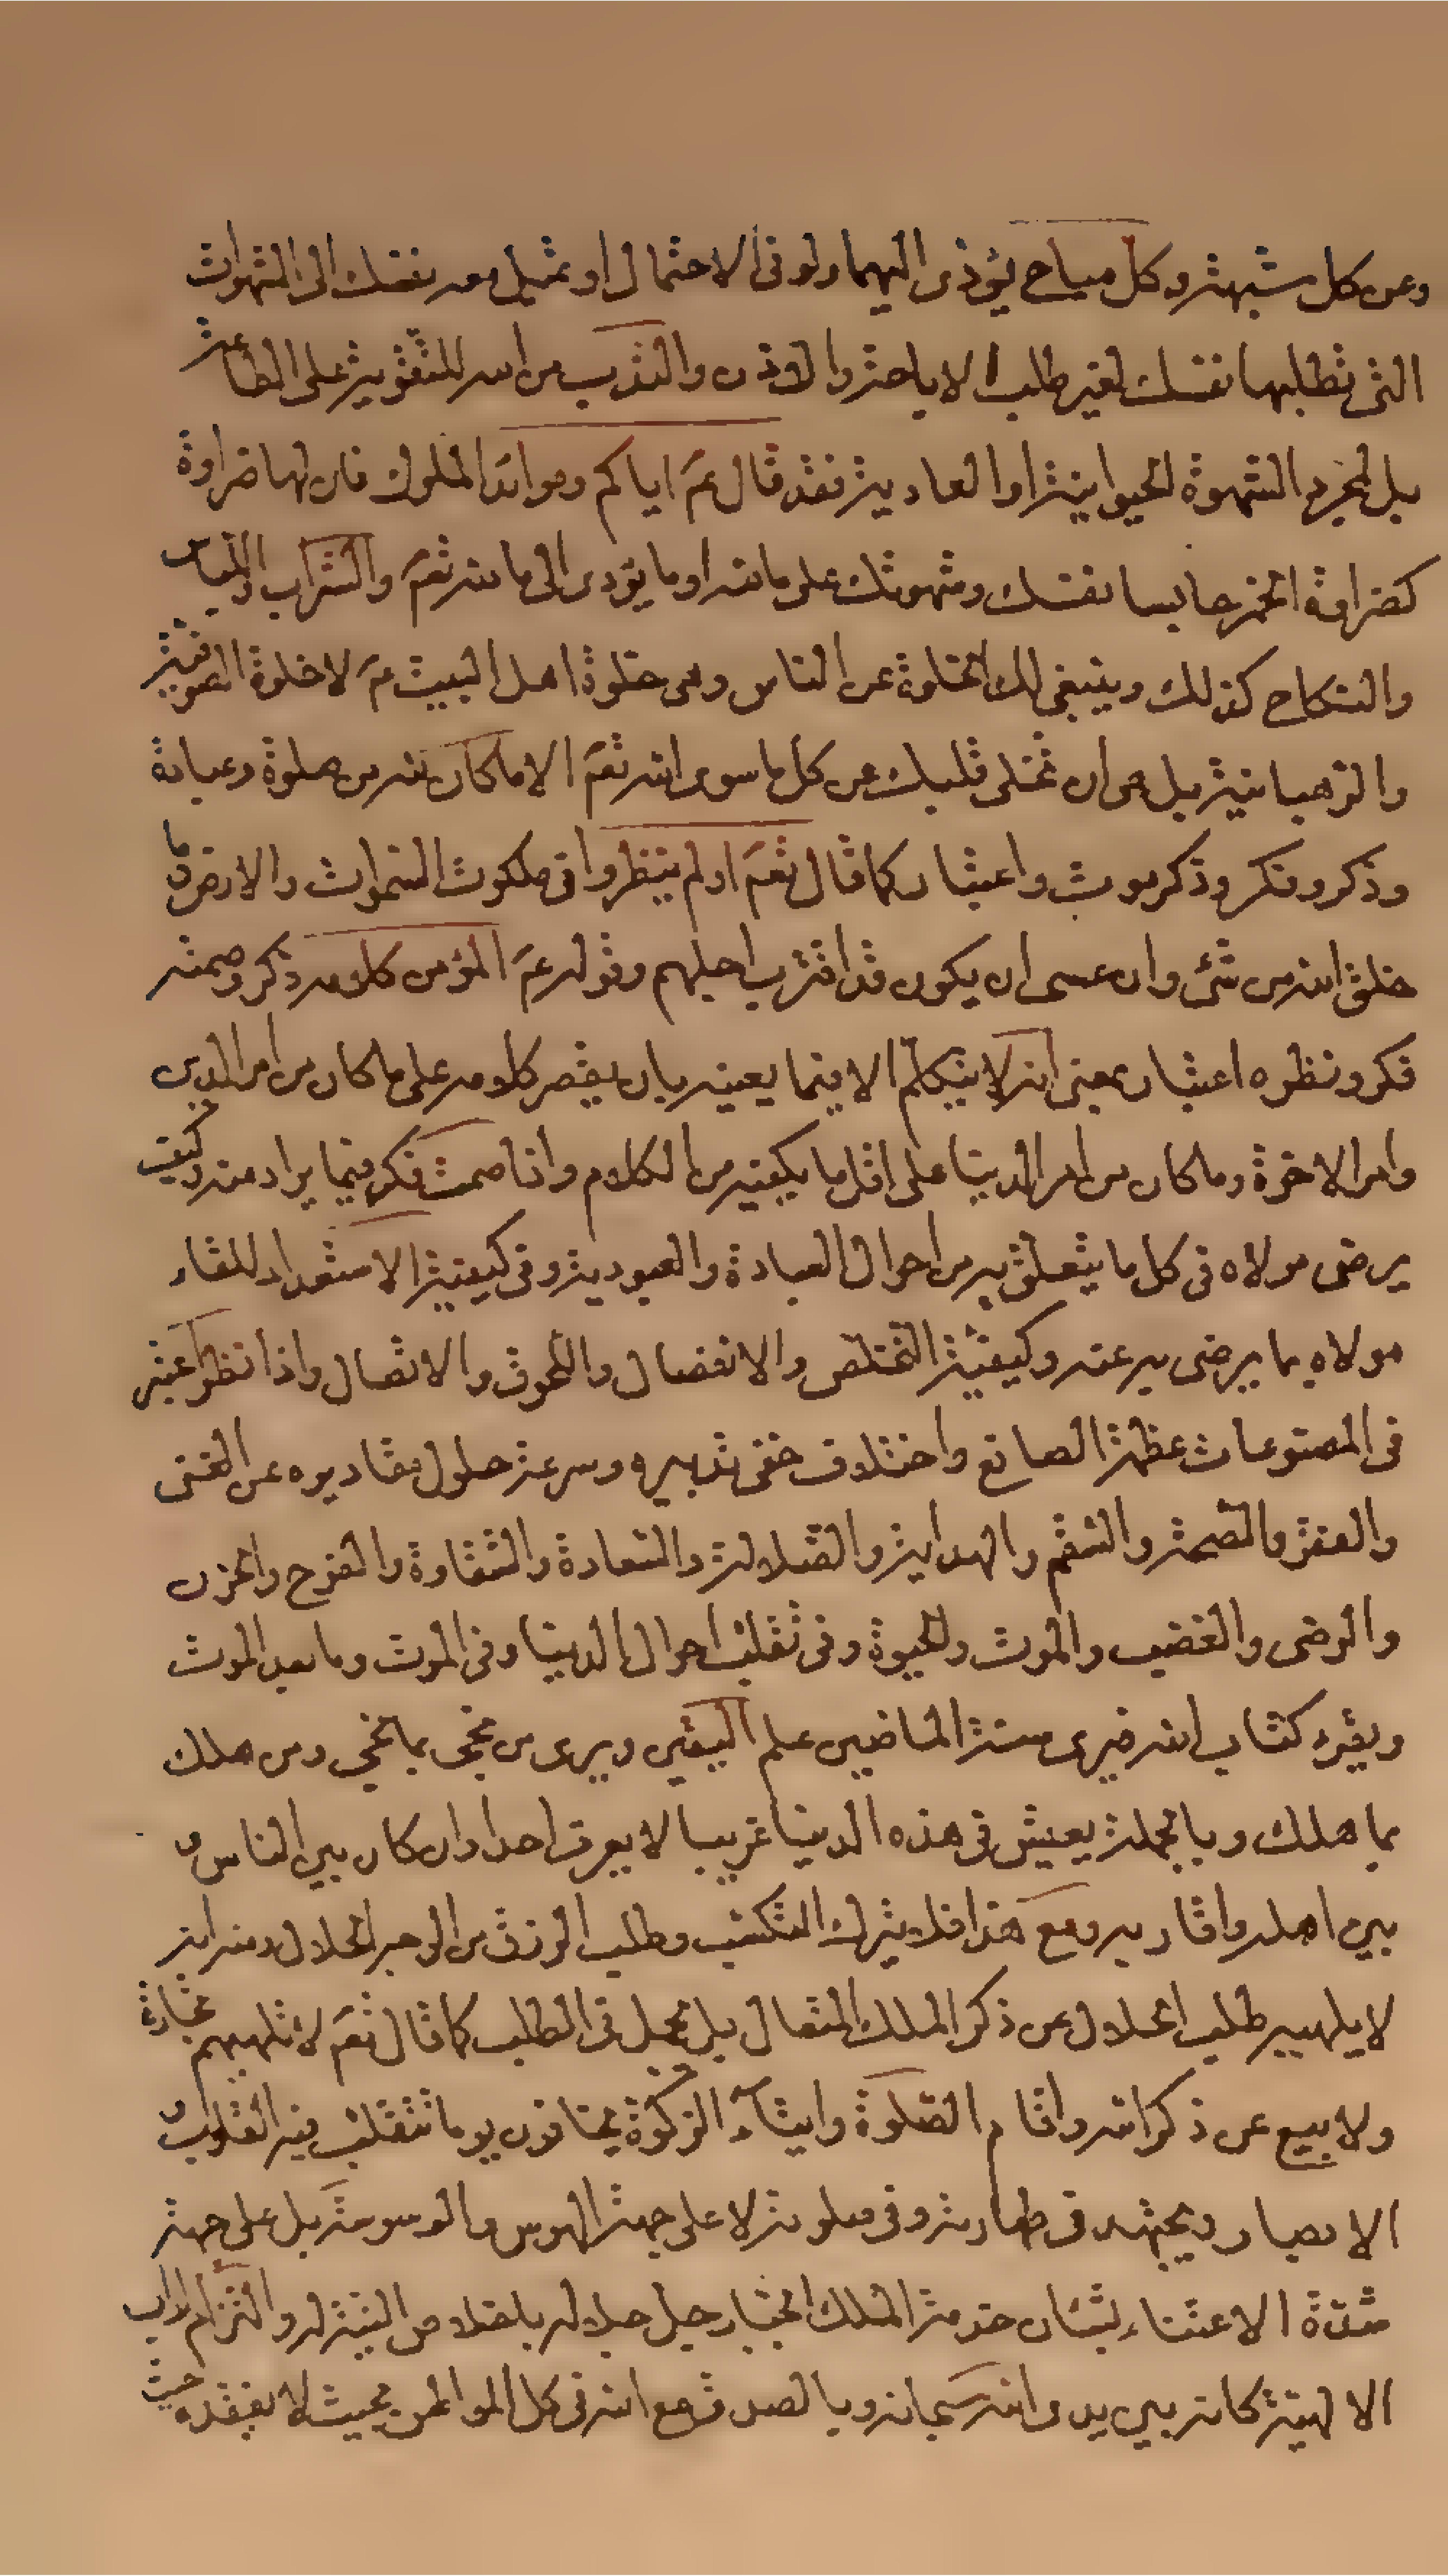 وعن كل شبهة وكل مباح يؤدى اليهما ولو فى الاحتمال او تميل معه نفسك الى الشهوات
التى تطلبها نفسك لغير طلب الاباحة والاذن والندب من الله للتقوية على الطاعة
بل لمجرد الشهوة الحيوانية او العادية فقد قال عم اياكم وموائد الملوك فان لها ضراوة
كضراوة الخمر حابسا نفسك وشهوتك على ما لله او ما يؤدى الى ما لله تعم والشراب واللباس
والنكاح كذلك وينبغى لك الخلوة عن الناس وهى خلوة اهل البيت عم لا خلوة الصوفية
والرهبانية بل هى ان تخلى قلبك عن كل ما سوى الله تعم الا ما كان لله من صلوة وعبادة
وذكر وفكر وذكر موت واعتبار كما قال تعم اولم ينظروا فى ملكوت السموات والارض وما
خلق الله من شئ وان عسى ان يكون قد اقترب اجلهم وقوله عم المؤمن كلامه ذكر وصمته
فكر ونظره اعتبار بمعنى انه لا يتكلم الا فيما يعنيه بان يقصر كلامه على ما كان من امر الدين
وامر الاخرة وما كان من امر الدنيا على اقل ما يكفيه من الكلام واذا صمت فكر فيما يراد منه وكيف
يرضى مولاه فى كل ما يتعلق به من احوال العبادة والعبودية وفى كيفية الاستعداد للقاء
مولاه بما يرضى به عنه وكيفية التخلص والانفصال واللحوق والاتصال واذا نظر اعتبر
فى المصنوعات عظمة الصانع واختلاف خفى تدبيره وسرعة حلول مقاديره عن الغنى
والفقر والصحة والسقم والهداية والضلالة والسعادة والشقاوة والفرح والحزن
والرضى والغضب والموت والحيوة وفى تقلب احوال الدنيا وفى الموت وما بعد الموت
ويقرء كتاب الله فيرى سنة الماضين علم اليقين ويرى من نجى بما نجى ومن هلك
بما هلك وبالجملة يعيش فى هذه الدنيا غريبا لا يعرف احدا وان كان بين الناس و
بين اهله واقاربه ومع هذا فلا يترك التكسب وطلب الرزق من الوجه الحلال ومنه انه
لا يلهيه طلب الحلال عن ذكر الملك المتعال بل يجمل فى الطلب كما قال تعم لا تلهيهم تجارة
ولا بيع عن ذكر الله واقام الصلوة وايتاء الزكوة يخافون يوما تتقلب فيه القلوب و
الابصار ويجتهد فى طهارته وفى صلوته لا على جهة الهوس والوسوسة بل على جهة
شدة الاعتناء بشان خدمة الملك الجبار جل جلاله باخلاص النية له والتزام اداب
الالهية كانه بين يدى الله سبحانه وبالصدق مع الله فى كل المواطن بحيث لا يفقده حيث